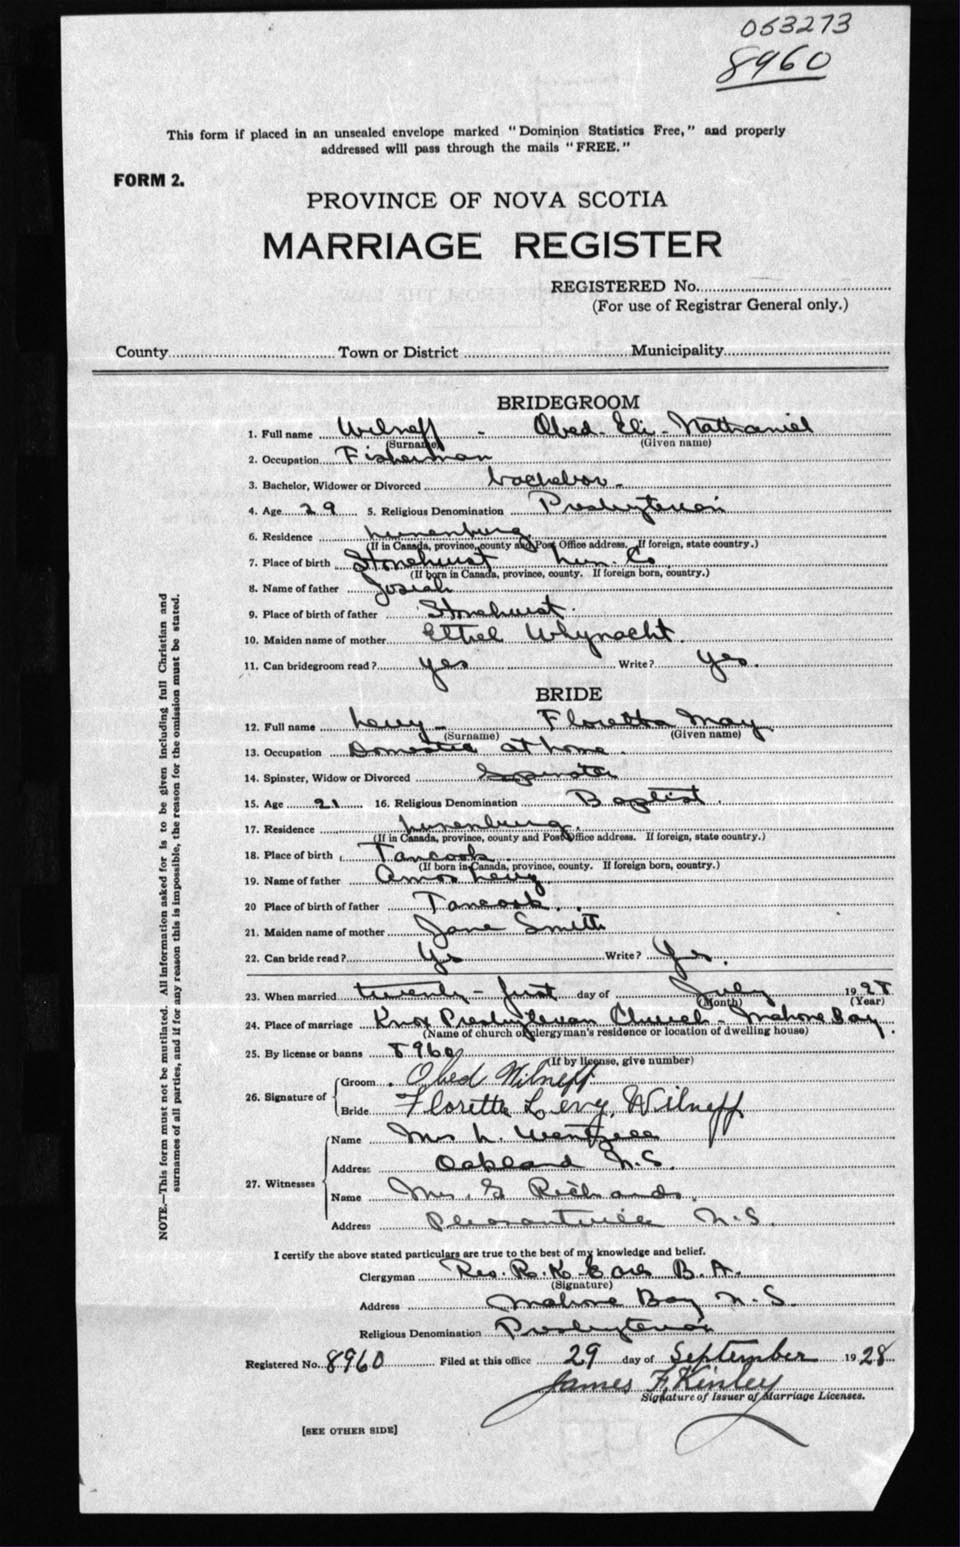 053273
8960
This form if placed in an unsealed envelope marked "Dominion Statistics Free," and properly
addressed will pass through the mails "FREE."
FORM 2.
PROVINCE OF NOVA SCOTIA
MARRIAGE REGISTER
REGISTERED No.
(For use of Registrar General only.)
County Town or District Municipality
BRIDEGROOM
1. Full name Wilneff - Obed - Eli - Nathaniel
(Surname) (Given name)
2. Occupation Fisherman
3. Bachelor, Widower or Divorced bachelor -
4. Age 29 5. Religious Denomination Presbyterian
6. Residence Lunenburg
(If in Canada, province, county and Post Office address. If foreign, state country.)
7. Place of birth Stonehurst Lun. Co.
(If born in Canada, province, county. If foreign born, country.)
8. Name of father Josiah
9. Place of birth of father Stonehurst.
10. Maiden name of mother Ethel Whynacht.
11. Can bridegroom read? yes Write? yes.
BRIDE
12. Full name Levy - Floretta May
(Surname) (Given name)
13. Occupation Domestic at home.
14. Spinster, Widow or Divorced Spinster
15. Age 21 16. Religious Denomination Baptist.
17. Residence Lunenburg.
(If in Canada, province, county and Post Office address. If foreign, state country.)
18. Place of birth Tancook.
(If born in Canada, province, county. If foreign born, country.)
19. Name of father Amos Levy
20 Place of birth of father Tancook.
21. Maiden name of mother Jane Smith
22. Can bride read? Yes Write? Yes.
23. When married twenty - first day of July 1928
(Month) (Year)
24. Place of marriage Knox Presbyterian Church - Mahone Bay.
(Name of church or clergyman's residence or location of dwelling house)
25. By license or banns 8960
(If by license, give number)
26. Signature of
Groom Obed Wilneff.
Bride Floretta Levy, Wilneff
27. Witnesses
Name Mrs L. Wentzell
Address Oakland N.S.
Name Mrs. G Richards.
Address Pleasantville N.S.
I certify the above stated particulars are true to the best of my knowledge and belief.
Clergyman Rev. R. K. B. A.
(Signature)
Address Mahone Bay N.S.
Religious Denomination Presbyterian
Registered No. 8960 Filed at this office 29 day of September 1928
James F. Kinley
Signature of Issuer of Marriage Licenses.
[SEE OTHER SIDE]
NOTE.—This form must not be mutilated. All information asked for is to be given including full Christian and
surnames of all parties, and if for any reason this is impossible, the reason for the omission must be stated.